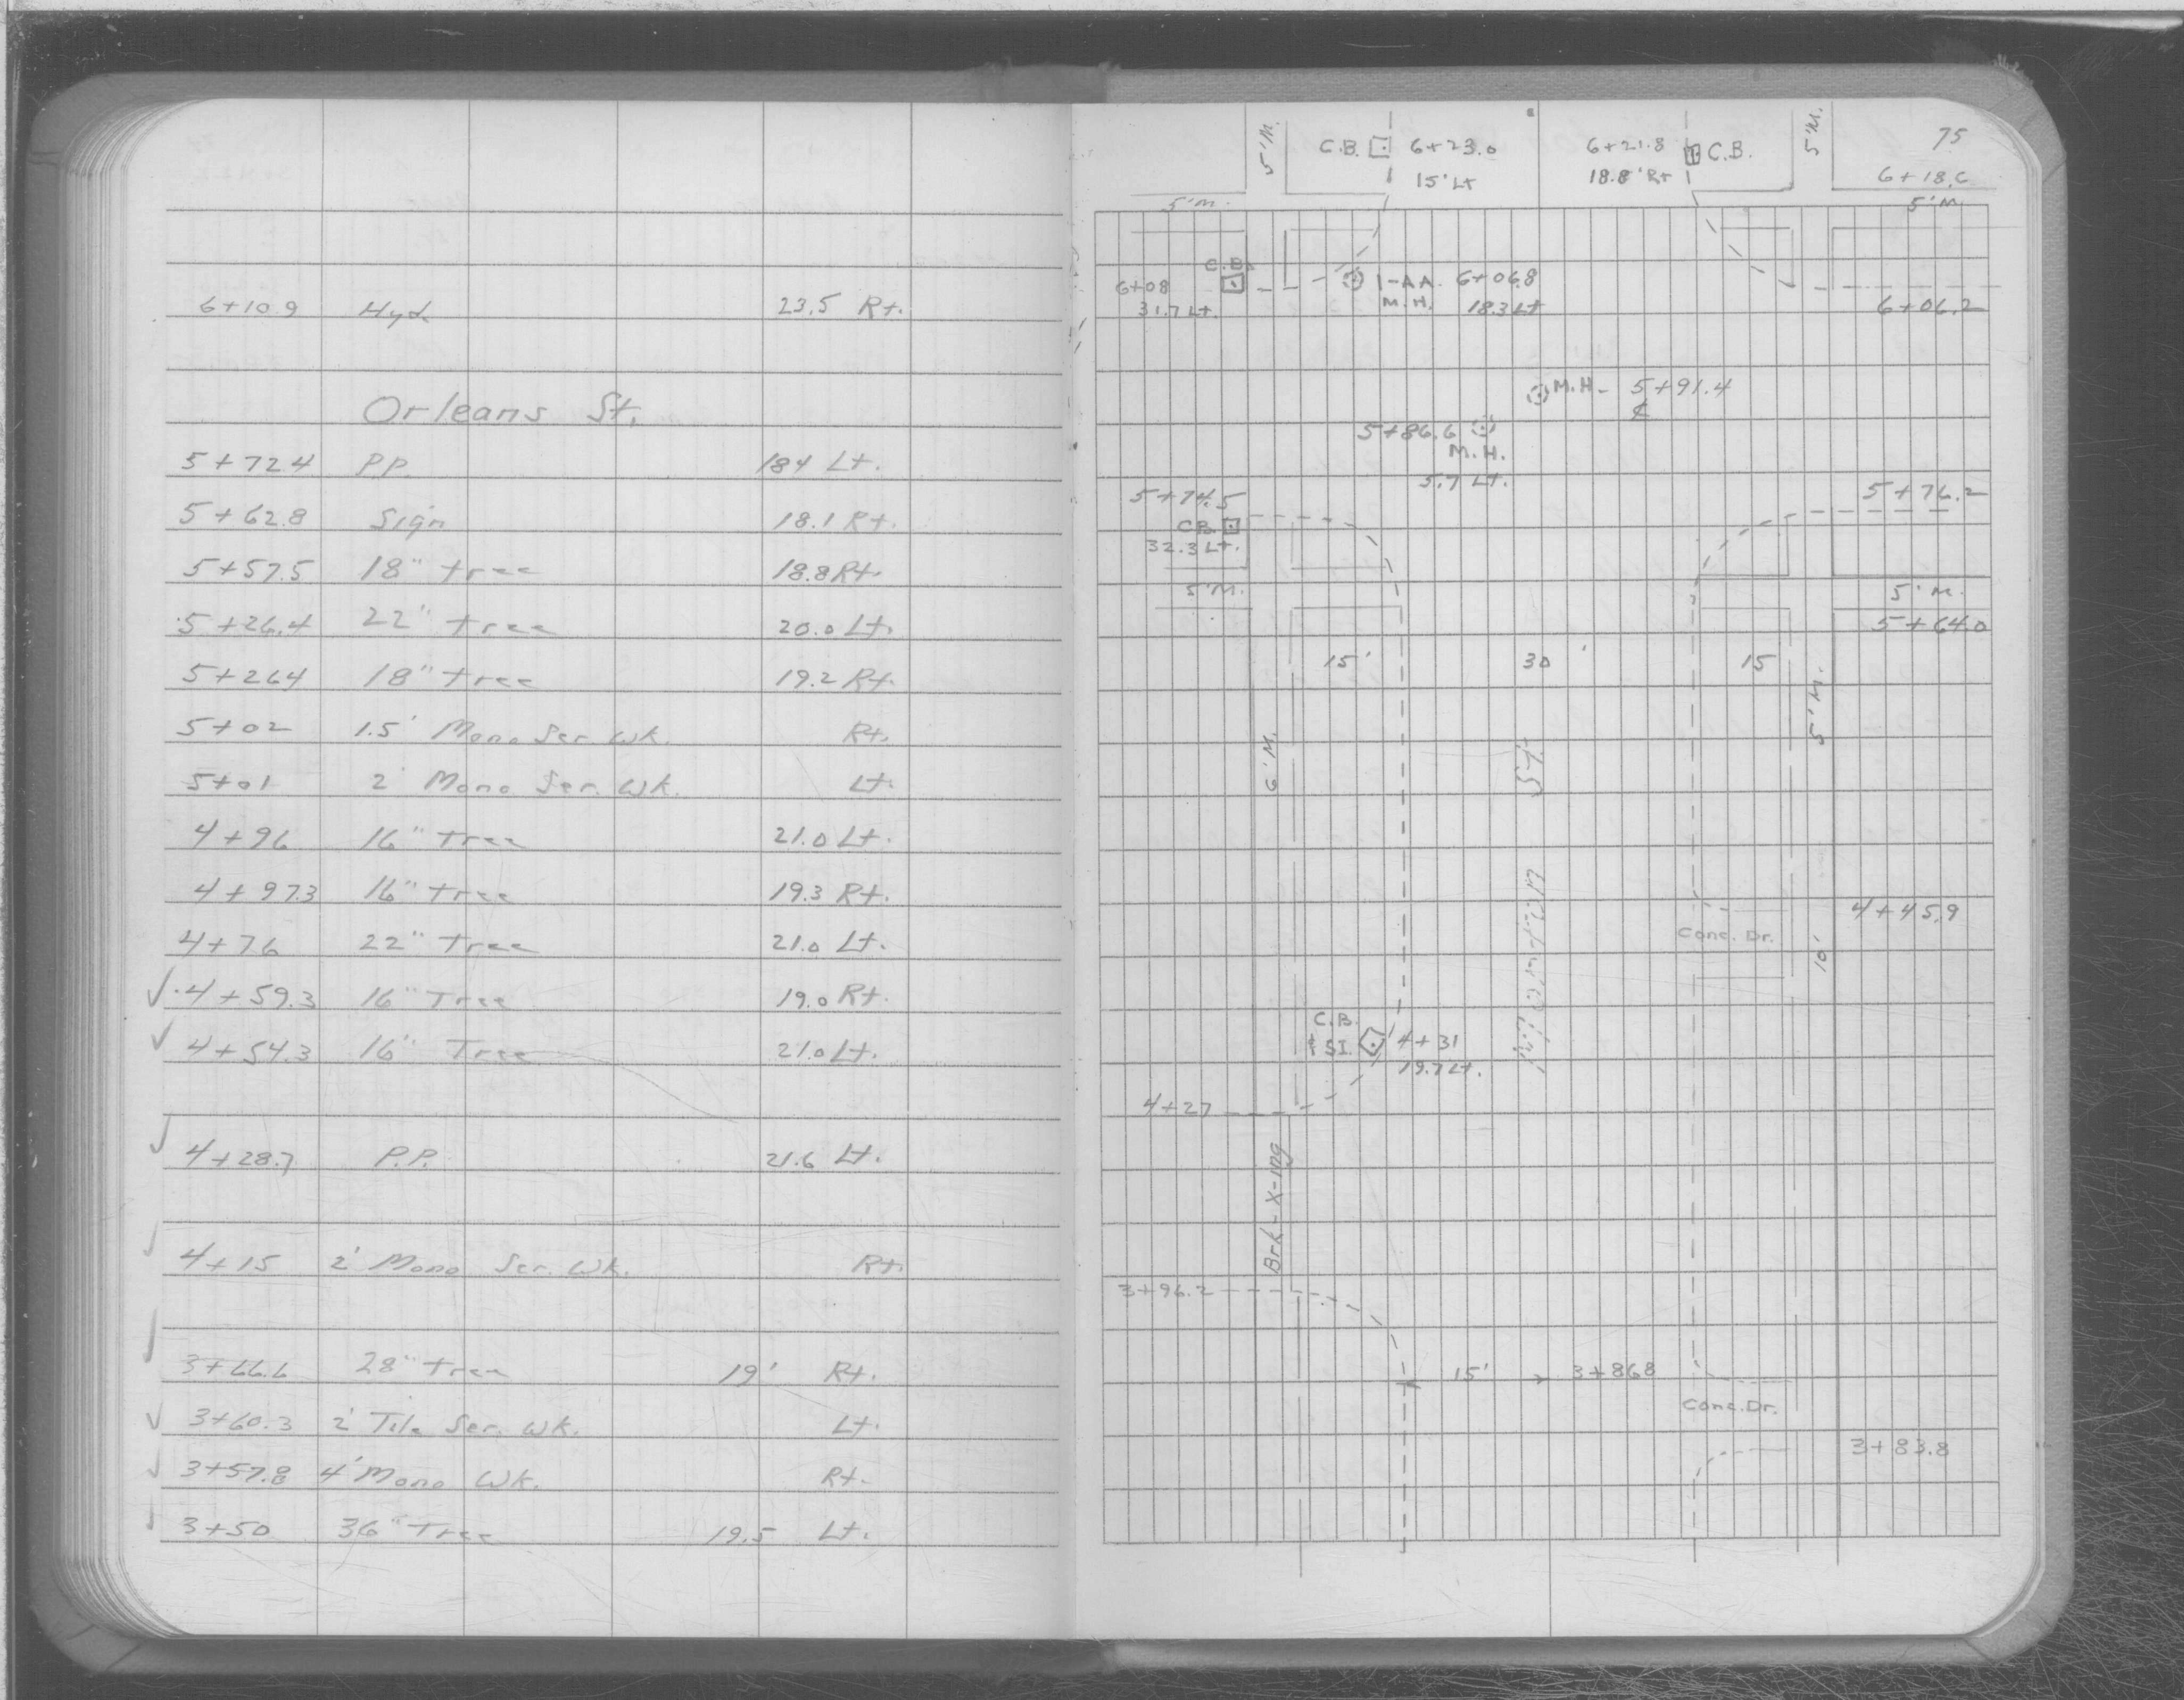 6+10.9 Hyd. 23.5 Rt.
Orleans St.
5+72.4 P.P. 18.4 Lt.
5+62.8 Sign 18.1 Rt.
5+57.5 18" tree 18.8 Rt.
5+26.4 22" tree 20.0 Lt.
5+26.4 18" tree 19.2 Rt.
5+02 1.5' Mono Ser. Wk. Rt.
5+01 2' Mono Ser. Wk. Lt.
4+96 16" tree 21.0 Lt.
4+97.3 16" tree 19.3 Rt.
4+76 22" tree 21.0 Lt.
✓ 4+59.3 16" Tree 19.0 Rt.
✓ 4+54.3 16" Tree 21.0 Lt.
✓ 4+28.7 P.P. 21.6 Lt.
✓ 4+15 2' Mono Ser. Wk. Rt.
✓ 3+66.6 28" tree 19' Rt.
✓ 3+60.3 2' Tile Ser. Wk. Lt.
✓ 3+57.8 4' Mono Wk. Rt.
3+50 36" Tree 19.5 Lt.
75
5'M. C.B. 6+23.0 6+21.8 C.B. 5'M.
15' Lt 18.8' Rt 6+18.6
5'M. 5'M.
C.B.
6+08 1-AA 6+06.8
31.7 Lt. M.H. 18.3 Lt 6+06.2
M.H. 5+91.4
℄
5+86.6
M.H.
5.7 Lt.
5+74.5 5+76.2
C.B.
32.3 Lt.
5'M. 5'M.
5+64.0
15' 30' 15
6'M. St. 5'M.
4+45.9
Conc. Dr.
10'
C.B.
& SI. 4+31
19.7 Lt.
4+27
Brk-X-ing
3+96.2
15' 3+86.8
Conc. Dr.
3+83.8